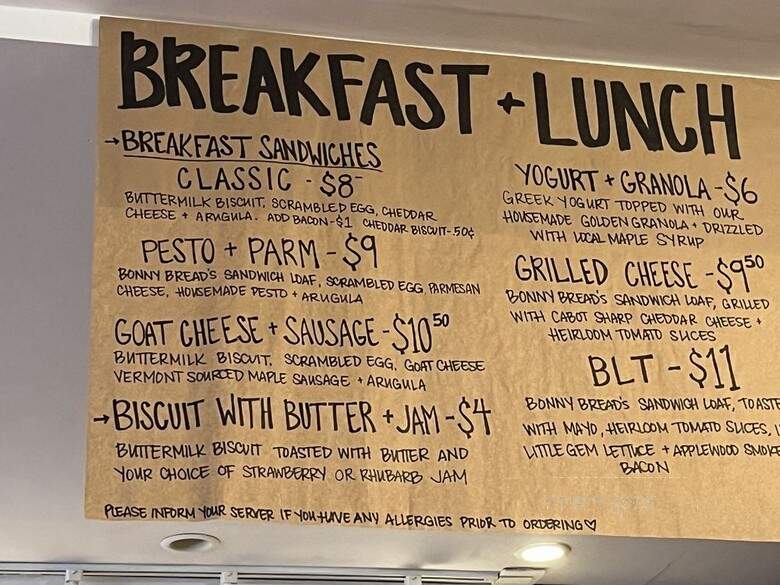 BREAKFAST + LUNCH
→BREAKFAST SANDWICHES
CLASSIC - $8
BUTTERMILK BISCUIT, SCRAMBLED EGG, CHEDDAR
CHEESE + ARUGULA. ADD BACON-$1 CHEDDAR BISCUIT-.50¢
PESTO + PARM - $9
BONNY BREAD'S SANDWICH LOAF, SCRAMBLED EGG, PARMESAN
CHEESE, HOUSEMADE PESTO + ARUGULA
GOAT CHEESE + SAUSAGE - $10 50
BUTTERMILK BISCUIT, SCRAMBLED EGG, GOAT CHEESE
VERMONT SOURCED MAPLE SAUSAGE + ARUGULA
→BISCUIT WITH BUTTER + JAM - $4
BUTTERMILK BISCUIT TOASTED WITH BUTTER AND
YOUR CHOICE OF STRAWBERRY OR RHUBARB JAM
YOGURT + GRANOLA - $6
GREEK YOGURT TOPPED WITH OUR
HOUSEMADE GOLDEN GRANOLA + DRIZZLED
WITH LOCAL MAPLE SYRUP
GRILLED CHEESE - $9 50
BONNY BREAD'S SANDWICH LOAF, GRILLED
WITH CABOT SHARP CHEDDAR CHEESE +
HEIRLOOM TOMATO SLICES
BLT - $11
BONNY BREAD'S SANDWICH LOAF, TOASTE
WITH MAYO, HEIRLOOM TOMATO SLICES,
LITTLE GEM LETTUCE + APPLEWOOD SMOKE
BACON
PLEASE INFORM YOUR SERVER IF YOU HAVE ANY ALLERGIES PRIOR TO ORDERING ♡